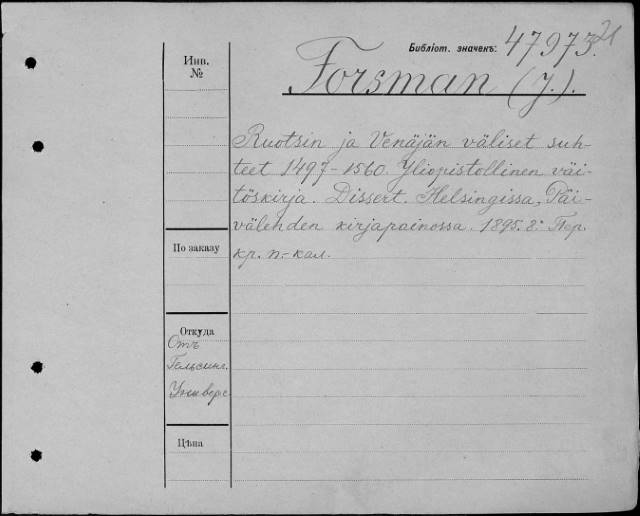 21
Библіот. значекъ: 47973.
Инв.
№
Forsman (J.).
Ruotsin ja Venäjän väliset suh-
teet 1497-1560. Yliopistollinen väi-
töskirja. Dissert. Helsingissa, Päi-
välehden kirjapainossa. 1895. 8º Пер.
кр. п.-кал.
По заказу
Откуда
Отъ
Гельсинг.
Универс
Цѣна